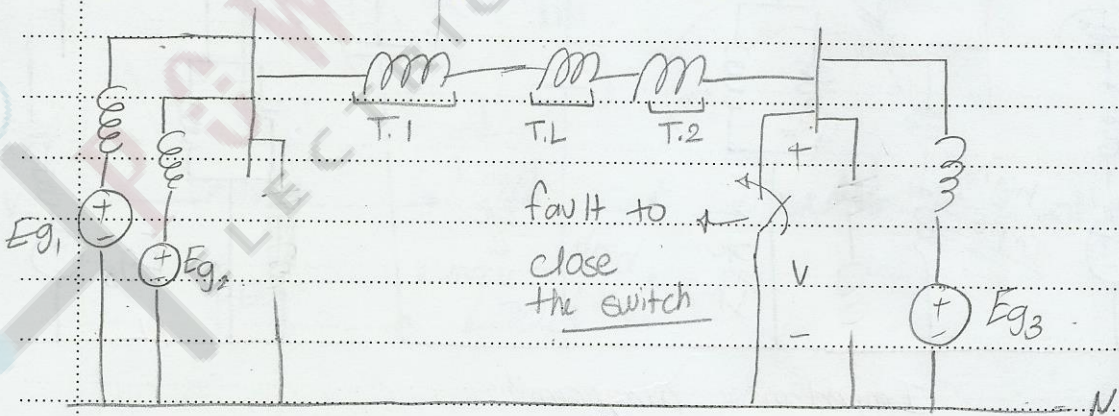 T.1
T.L
T.2
Eg1
Eg2
+
-
fault to
close
the switch
+
V
-
+
-
Eg3
N